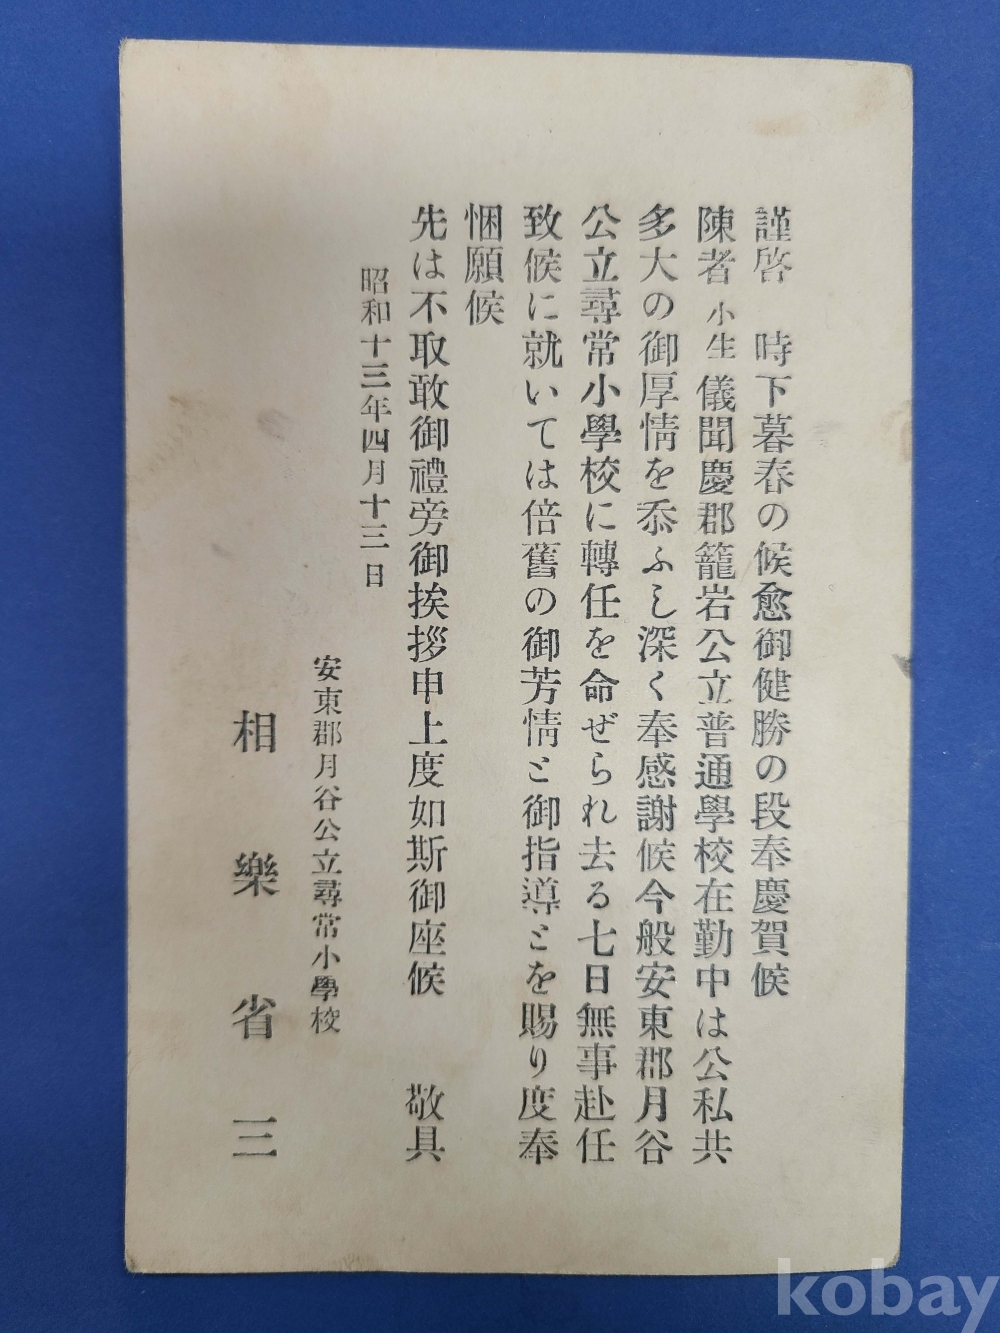 謹啓　時下暮春の候愈御健勝の段奉慶賀候
陳者小生儀聞慶郡籠岩公立普通學校在勤中は公私共
多大の御厚情を忝ふし深く奉感謝候今般安東郡月谷
公立尋常小學校に轉任を命ぜられ去る七日無事赴任
致候に就いては倍舊の御芳情と御指導とを賜り度奉
悃願候
先は不取敢御禮旁御挨拶申上度如斯御座候　　敬具
昭和十三年四月十三日
安東郡月谷公立尋常小學校
相樂省三
kobay